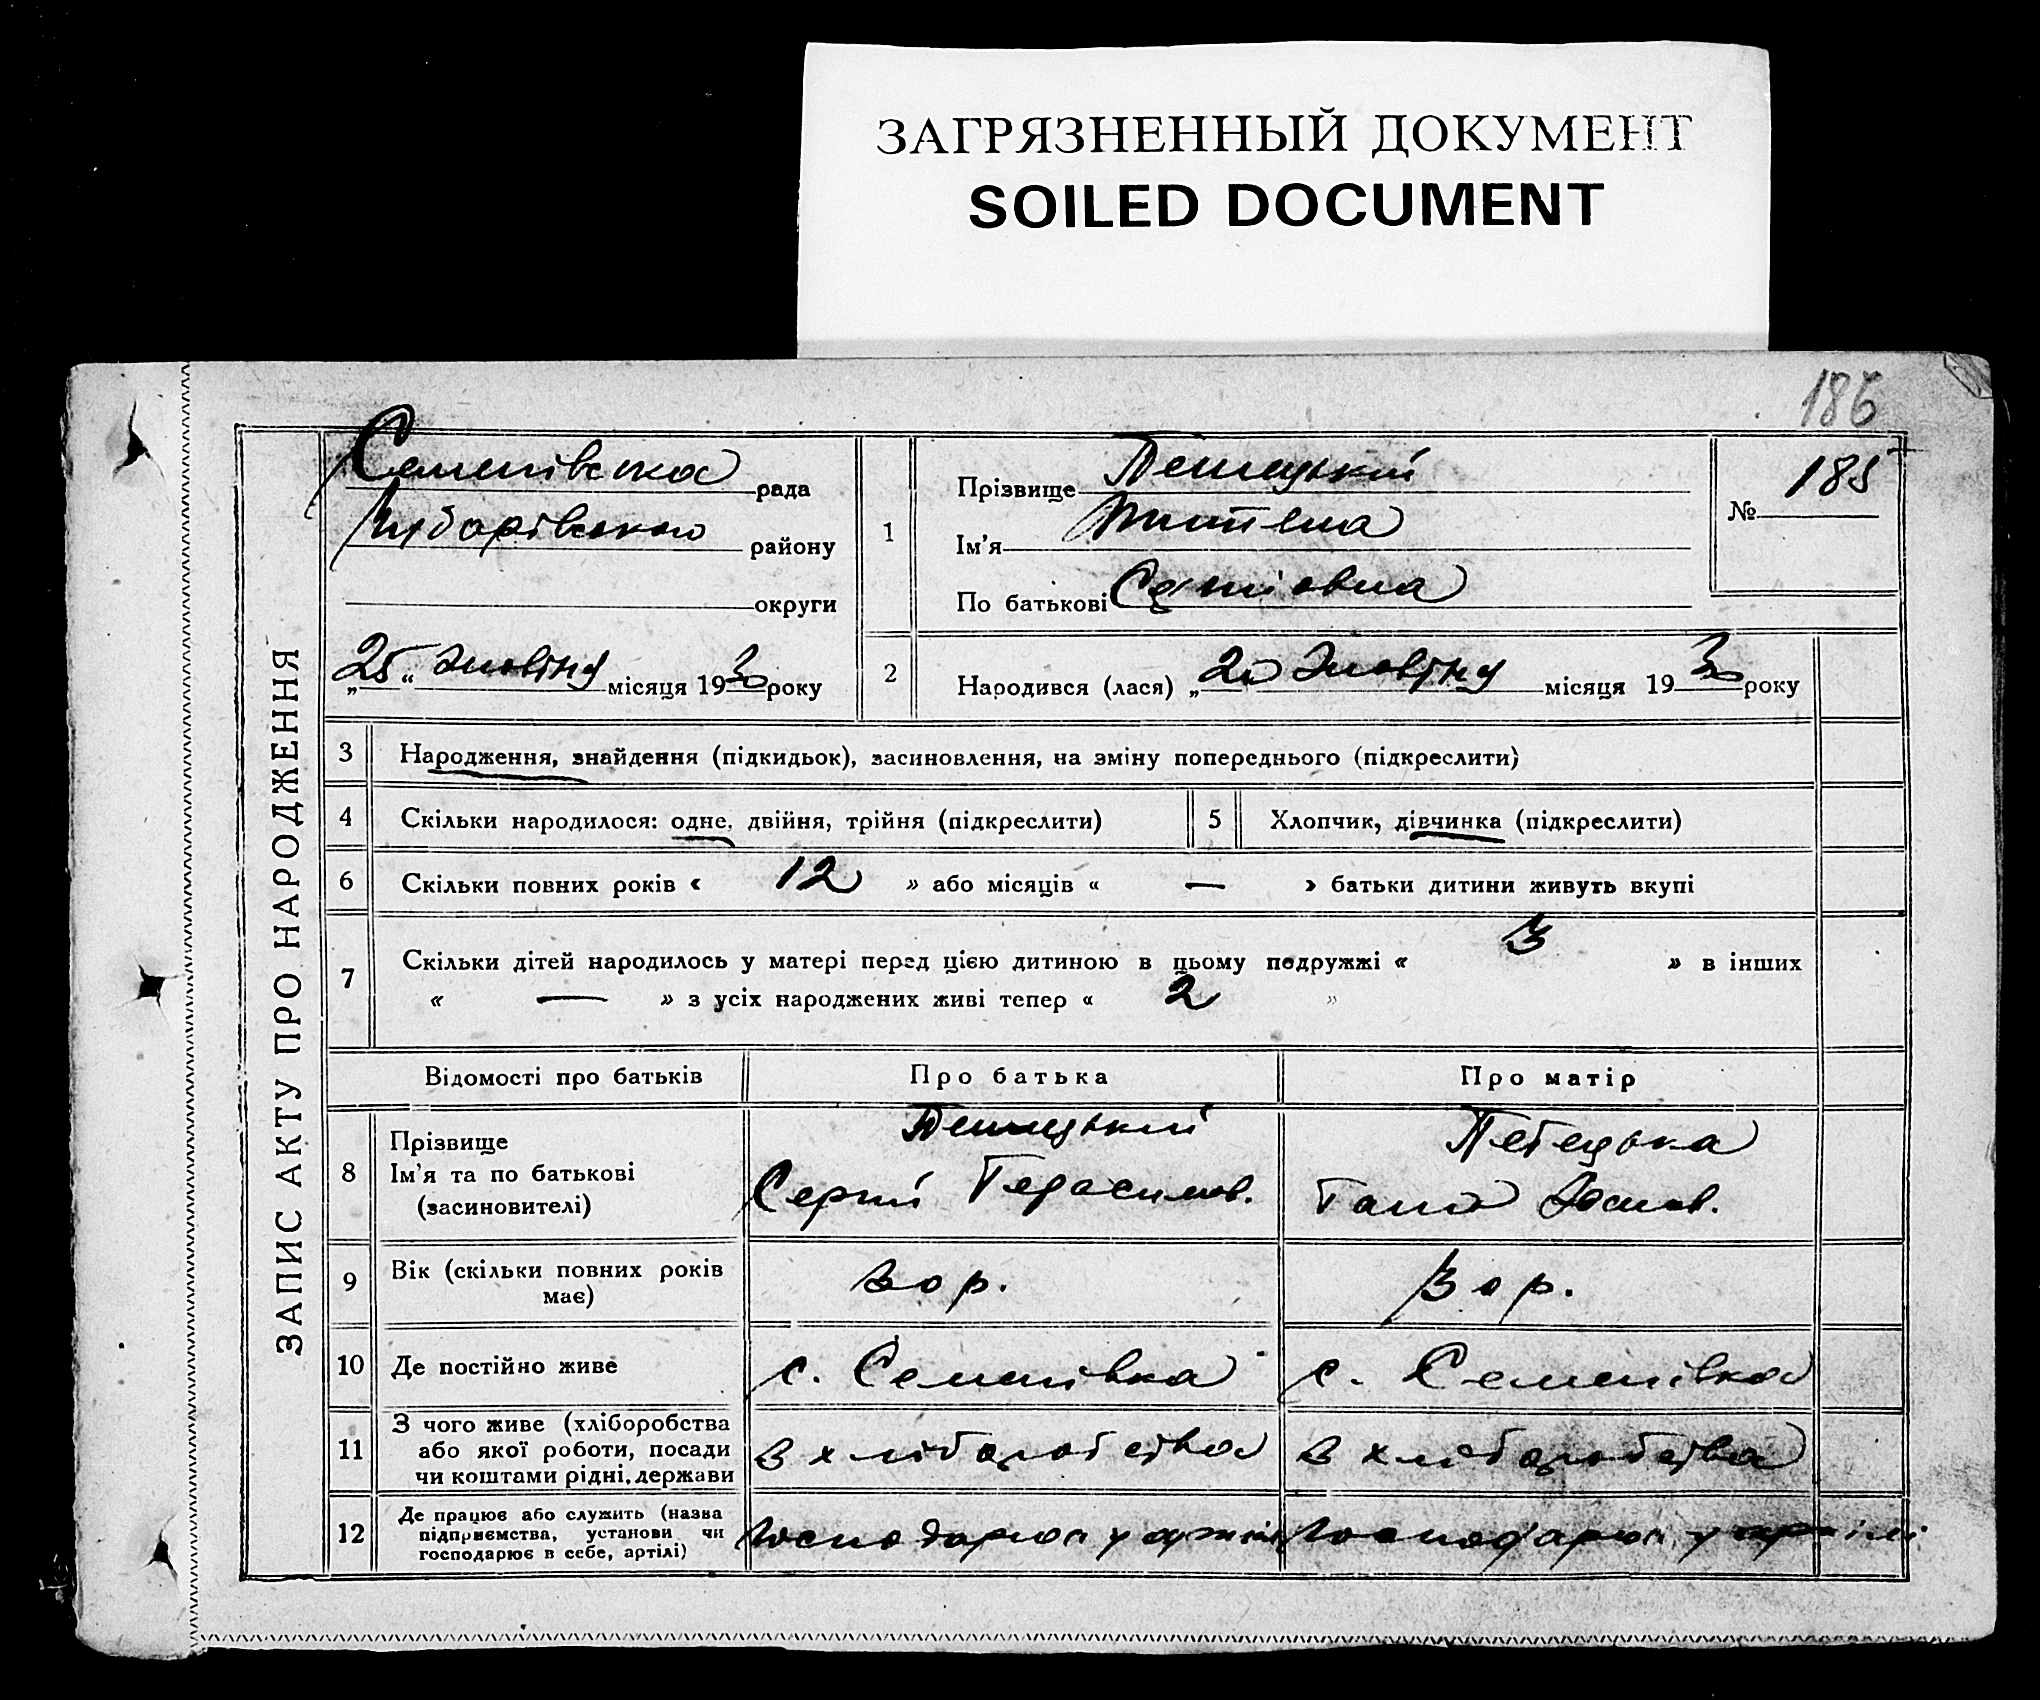 ЗАГРЯЗНЕННЫЙ ДОКУМЕНТ
SOILED DOCUMENT
186
ЗАПИС АКТУ ПРО НАРОДЖЕННЯ
Семенівська рада
району
округи
„25“ жовтня місяця 1930 року
1
Прізвище
Ім'я
По батькові
№ 185
2
Народився (лася) „20 жовтня місяця 1930 року
3 Народження, знайдення (підкидьок), засиновлення, на зміну попереднього (підкреслити)
4 Скільки народилося: одне, двійня, трійня (підкреслити)
5 Хлопчик, дівчинка (підкреслити)
6 Скільки повних років « 12 » або місяців « — » батьки дитини живуть вкупі
7 Скільки дітей народилось у матері перед цією дитиною в цьому подружжі « 3 » в інших
« — » з усіх народжених живі тепер « 2 »
Відомості про батьків Про батька Про матір
8 Прізвище
Ім'я та по батькові
(засиновителі)
Сергій Герасимов.
Ганна
9 Вік (скільки повних років
має)
30 р. 30 р.
10 Де постійно живе с. Семенівка с. Семенівка
11 З чого живе (хліборобства
або якої роботи, посади
чи коштами рідні, держави
З хліборобства З хліборобства
12 Де працює або служить (назва
підприємства, установи чи
господарює в себе, артілі)
у артілі у артілі